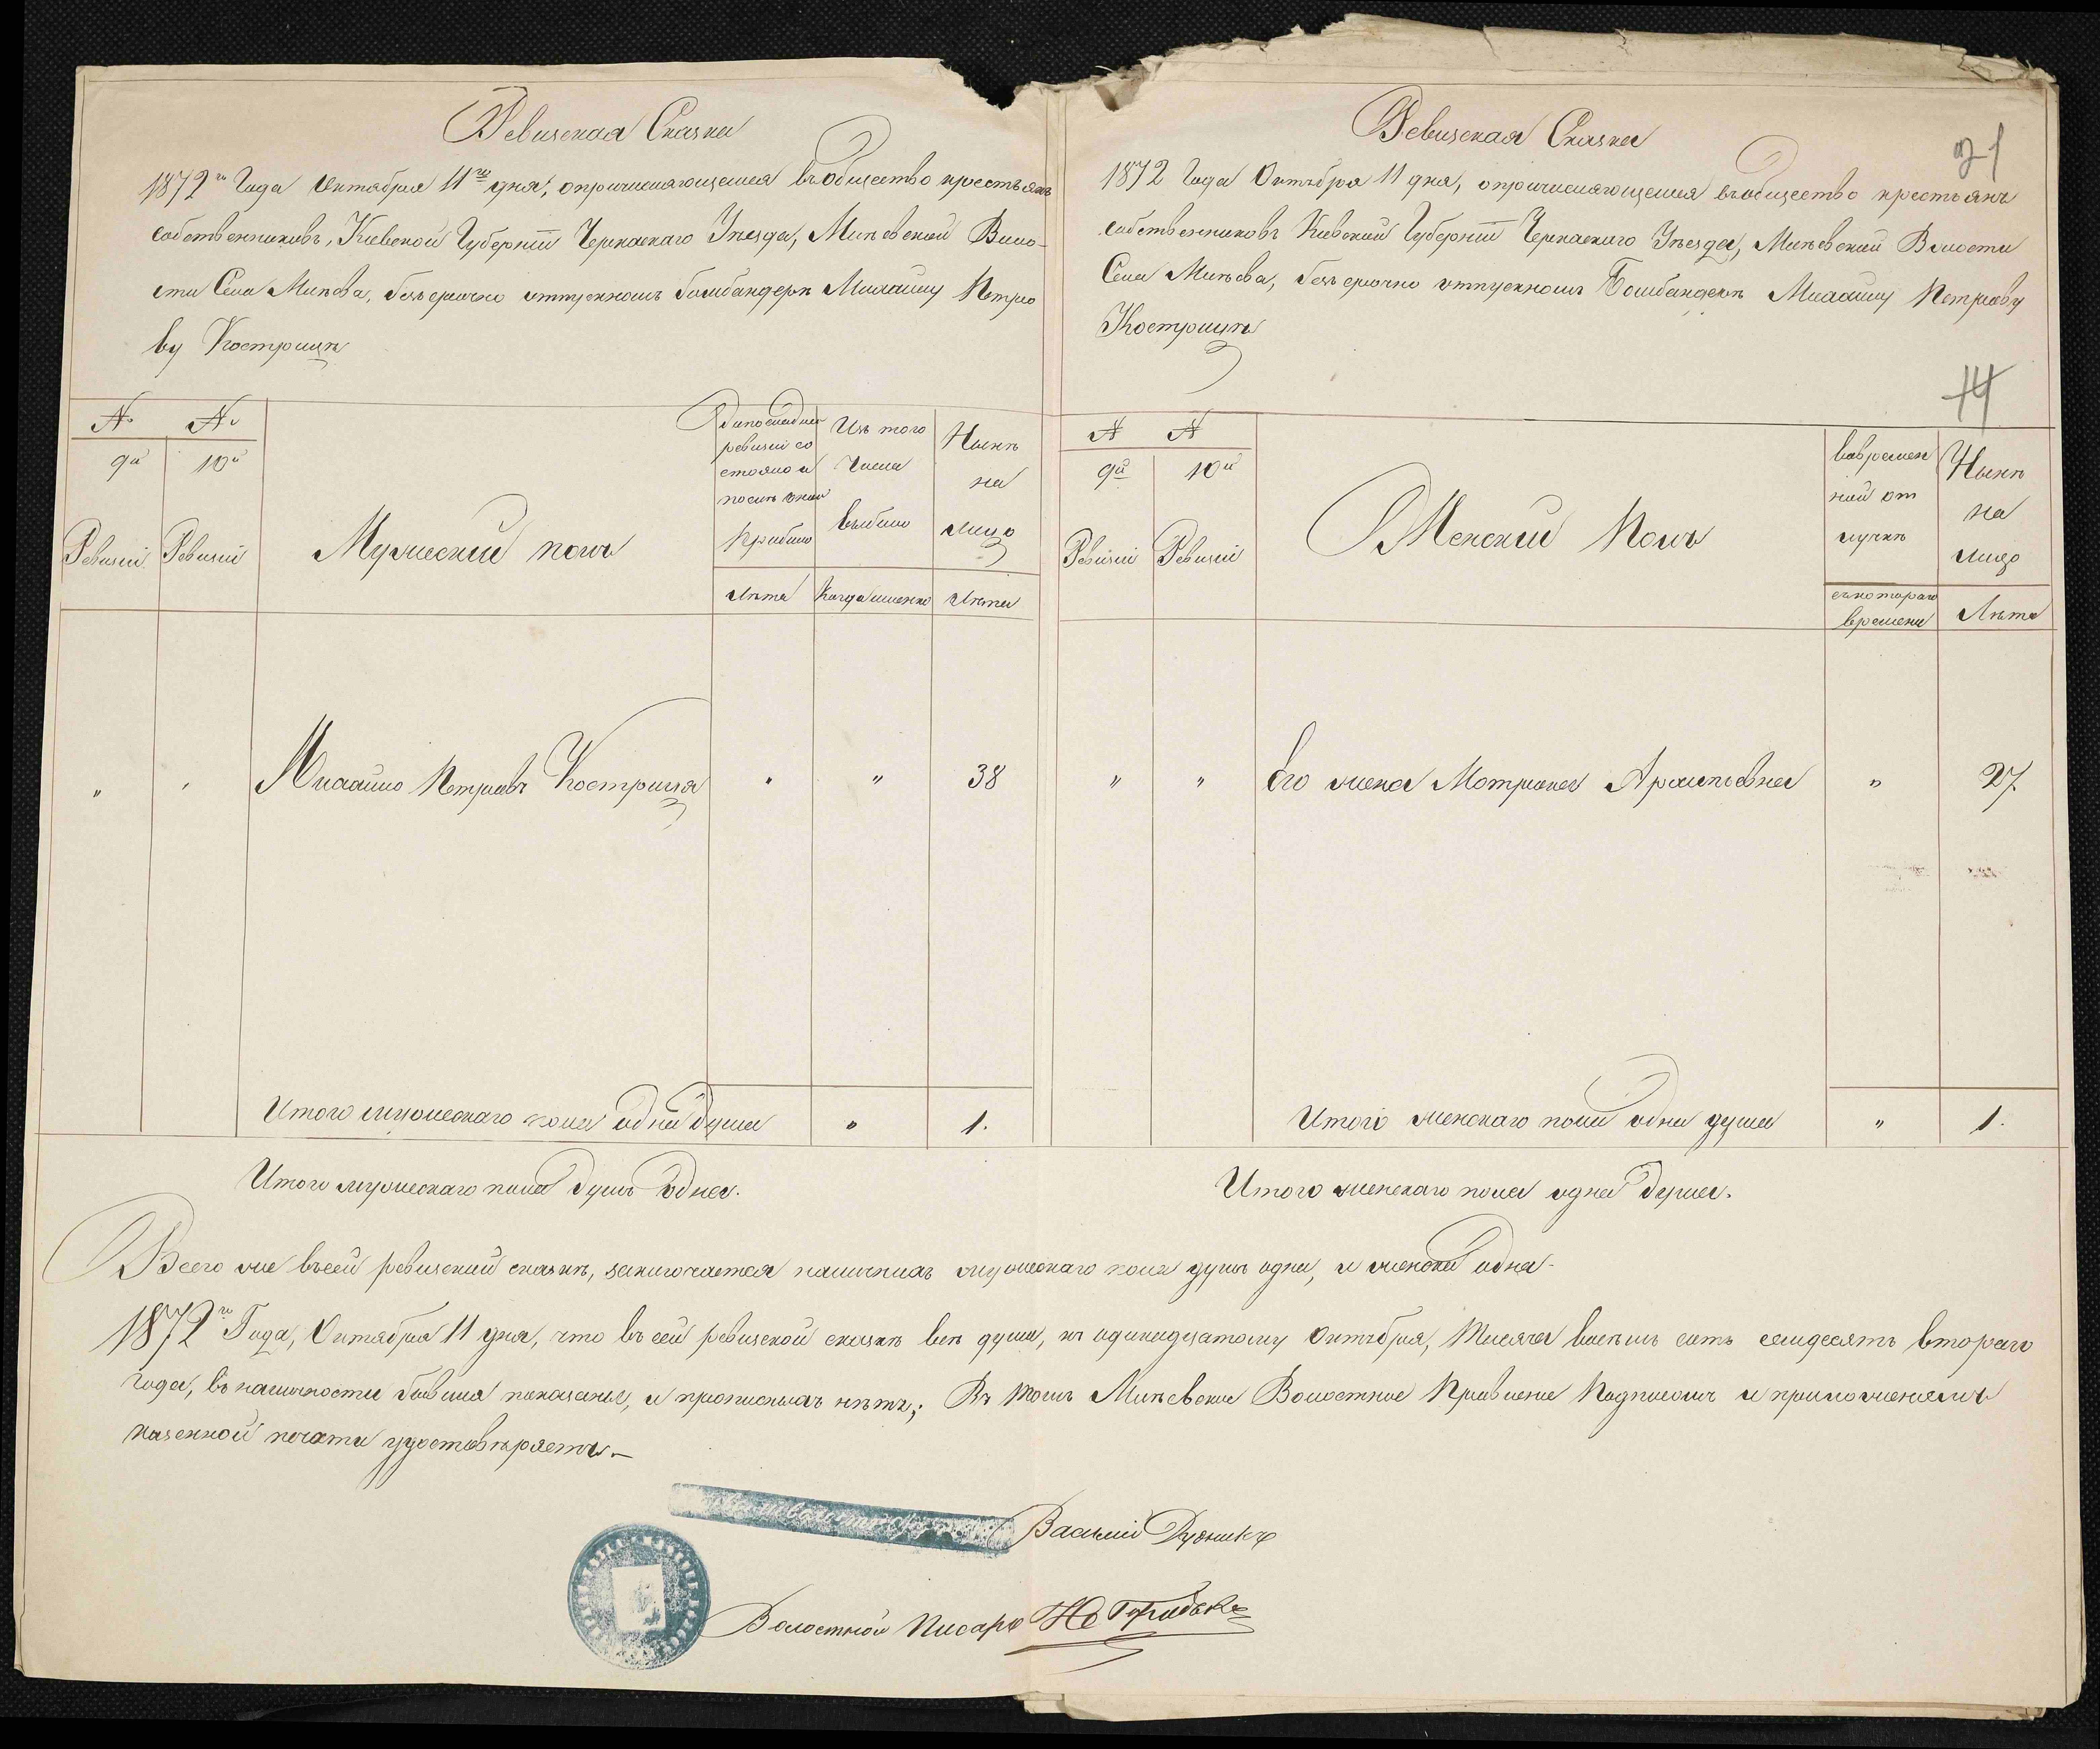 Ревизская Сказка
1872го Года Октября 11го дня, о причисляющемся въ общество крестьянъ
собственниковъ, Кіевской Губерніи Черкаскаго Уѣзда, Млѣевской Воло-
сти Села Млѣева, безсрочно отпускномъ бомбандерѣ Михайлу Петро
ву Кострицѣ
№ №
9й 10й
Ревизіи Ревизіи
Мужеский полъ
ревизіи со
стояло и
прибыло
Лѣта
Изъ того
Числа
выбыло
Когда именно
Нынѣ
на
лицо
Лѣта
" " Михайло Петровъ Кострица " " 38
Итого мужескаго пола одна душа " 1.
Итого мужескаго пола душъ одна.
Ревизская Сказка
21
1872 Года Октября 11 дня, о причисляющемся въ общество крестьянъ
собственниковъ Кіевской Губерніи Черкаскаго Уѣзда, Млѣевской Волости
Села Млѣева, безсрочно отпускномъ Бомбандерѣ Михайлу Петрову
Кострицѣ
14
№ №
9й 10й
Ревизіи Ревизіи
Женский Полъ
во времен
ной от
лучкѣ
съ котораго
времени
Нынѣ
на
лицо
Лѣта
" " Его жена Мотрона Архиповна " 27.
Итого женскаго пола одна душа " 1.
Итого женскаго пола одна душа.
Всего же въ сей ревизской сказкѣ, заключается наличныхъ мужескаго пола душъ одна, и женска одна
1872го Года, Октября 11 дня, что въ сей ревизской сказкѣ всѣ души, къ одинадцатому Октября, тысяча восемь сотъ семдесятъ втораго
года, въ наличности бывшія показаны, и прописныхъ нѣтъ; Въ томъ Млѣевское Волостное Правление Подписомъ и приложениемъ
казенной печати удостовѣряетъ.
Василий
Волостной Писарь